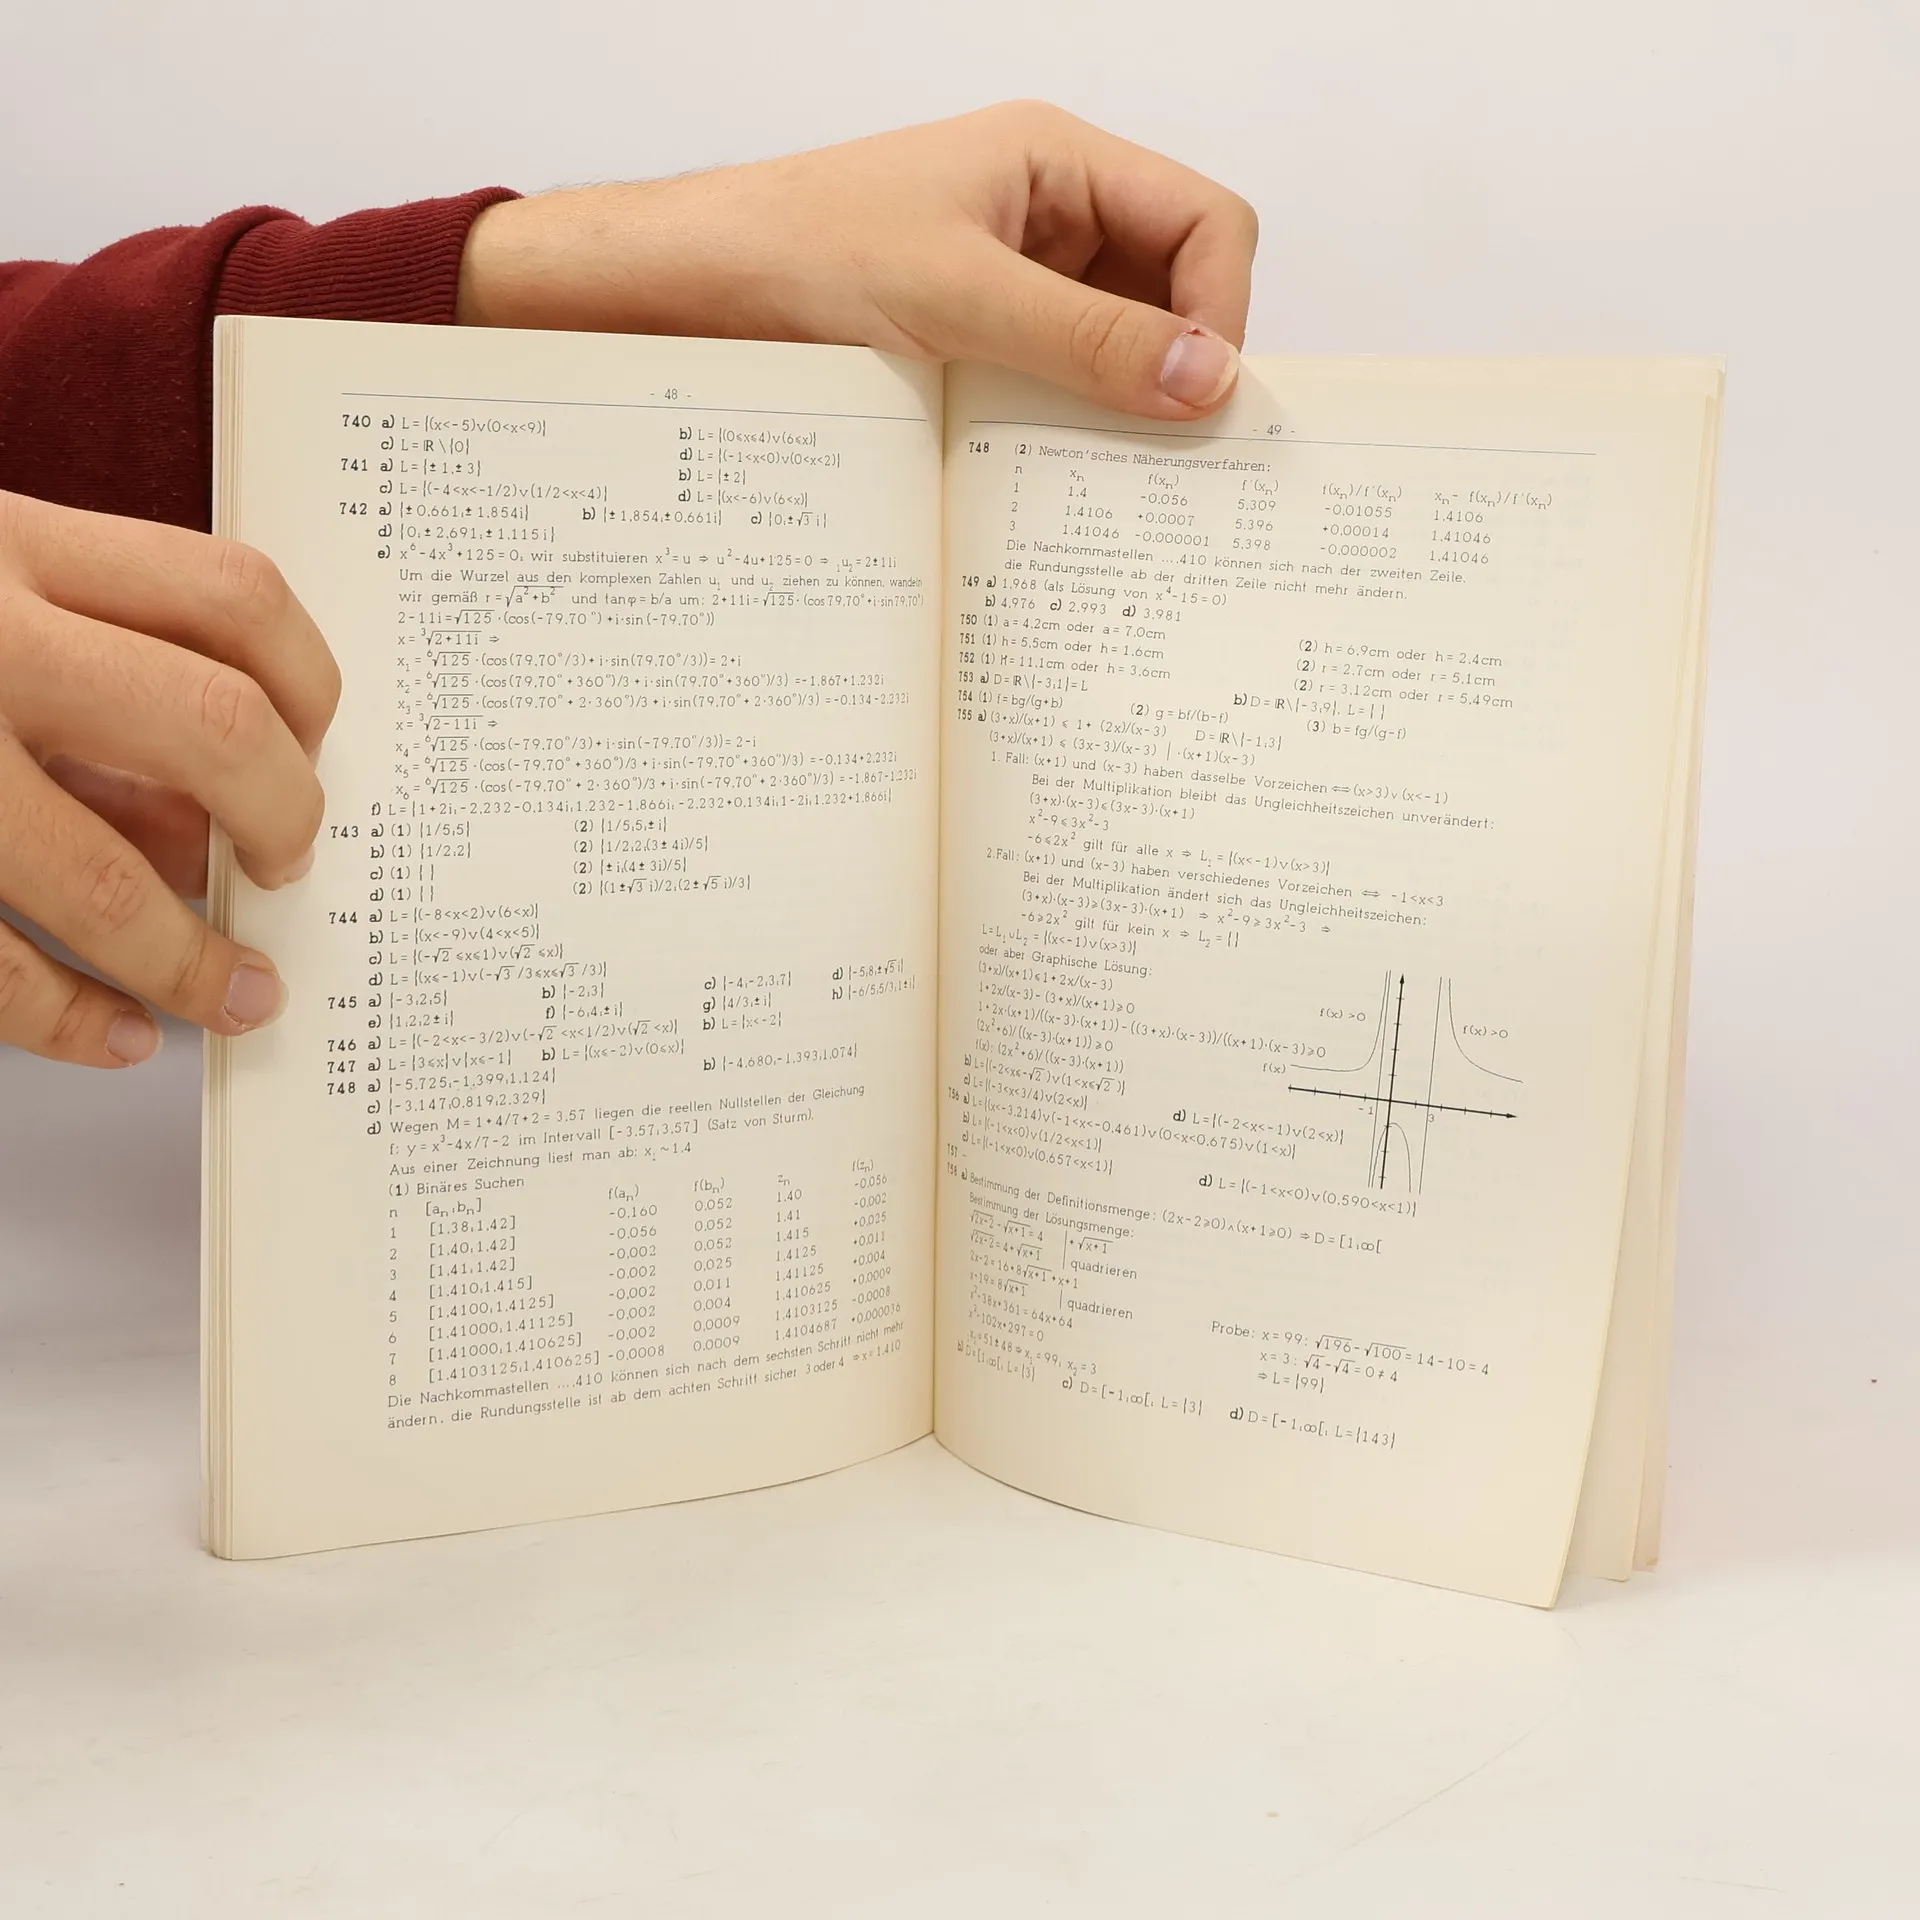 - 48 -
740 a) L = {(x<-5)v(0<x<9)} b) L = {(0⩽x⩽4)v(6⩽x)}
c) L = ℝ\{0} d) L = {(-1<x<0)v(0<x<2)}
741 a) L = {±1,±3} b) L = {±2}
c) L = {(-4<x<-1/2)v(1/2<x<4)} d) L = {(x<-6)v(6<x)}
742 a) {±0,661,±1,854i} b) {±1,854,±0,661i} c) {0,±√3 i}
d) {0,±2,691,±1,115i}
e) x⁶-4x³+125=0, wir substituieren x³=u ⇒ u²-4u+125=0 ⇒ ₁u₂=2±11i
Um die Wurzel aus den komplexen Zahlen u₁ und u₂ ziehen zu können, wandeln
wir gemäß r=√a²+b² und tanφ=b/a um: 2+11i=√125·(cos79,70°+i·sin79,70°)
2-11i=√125·(cos(-79,70°)+i·sin(-79,70°))
x=³√2+11i ⇒
x₁=⁶√125·(cos(79,70°/3)+i·sin(79,70°/3))=2+i
x₂=⁶√125·(cos(79,70°+360°)/3+i·sin(79,70°+360°)/3)=-1,867+1,232i
x₃=⁶√125·(cos(79,70°+2·360°)/3+i·sin(79,70°+2·360°)/3)=-0,134-2,232i
x=³√2-11i ⇒
x₄=⁶√125·(cos(-79,70°/3)+i·sin(-79,70°/3))=2-i
x₅=⁶√125·(cos(-79,70°+360°)/3+i·sin(-79,70°+360°)/3)=-0,134+2,232i
x₆=⁶√125·(cos(-79,70°+2·360°)/3+i·sin(-79,70°+2·360°)/3)=-1,867-1,232i
f) L={1+2i,-2,232-0,134i,1,232-1,866i,-2,232+0,134i,1-2i,1,232+1,866i}
743 a) (1) {1/5,5} (2) {1/5,5,±i}
b) (1) {1/2,2} (2) {1/2,2,(3±4i)/5}
c) (1) { } (2) {±i,(4±3i)/5}
d) (1) { } (2) {(1±√3 i)/2,(2±√5 i)/3}
744 a) L={(-8<x<2)v(6<x)}
b) L={(x<-9)v(4<x<5)}
c) L={(-√2⩽x⩽1)v(√2⩽x)}
d) L={(x⩽-1)v(-√3/3⩽x⩽√3/3)}
745 a) {-3,2,5} b) {-2,3} c) {-4,-2,3,7} d) {-5,8,±√5 i}
e) {1,2,2±i} f) {-6,4,±i} g) {4/3,±i} h) {-6/5,5/3,1±i}
746 a) L={(-2<x<-3/2)v(-√2<x<1/2)v(√2<x)} b) L={x<-2}
747 a) L={3⩽x}v{x⩽-1} b) L={(x⩽-2)v(0⩽x)}
748 a) {-5,725,-1,399,1,124} b) {-4,680,-1,393,1,074}
c) {-3,147,0,819,2,329}
d) Wegen M=1+4/7+2=3,57 liegen die reellen Nullstellen der Gleichung
f: y=x³-4x/7-2 im Intervall [-3,57,3,57] (Satz von Sturm).
Aus einer Zeichnung liest man ab: x₁~1,4
(1) Binäres Suchen
n [aₙ,bₙ] f(aₙ) f(bₙ) zₙ f(zₙ)
1 [1,38,1,42] -0,160 0,052 1,40 -0,056
2 [1,40,1,42] -0,056 0,052 1,41 -0,002
3 [1,41,1,42] -0,002 0,052 1,415 +0,025
4 [1,410,1,415] -0,002 0,025 1,4125 +0,011
5 [1,4100,1,4125] -0,002 0,011 1,41125 +0,004
6 [1,41000,1,41125] -0,002 0,004 1,410625 +0,0009
7 [1,41000,1,410625] -0,002 0,0009 1,4103125 -0,0008
8 [1,4103125,1,410625] -0,0008 0,0009 1,4104687 +0,000036
Die Nachkommastellen ....410 können sich nach dem sechsten Schritt nicht mehr
ändern, die Rundungsstelle ist ab dem achten Schritt sicher 3 oder 4 ⇒x=1,410
- 49 -
748 (2) Newton'sches Näherungsverfahren:
n xₙ f(xₙ) f'(xₙ) f(xₙ)/f'(xₙ) xₙ- f(xₙ)/f'(xₙ)
1 1,4 -0,056 5,309 -0,01055 1,4106
2 1,4106 +0,0007 5,396 +0,00014 1,41046
3 1,41046 -0,000001 5,398 -0,000002 1,41046
Die Nachkommastellen ....410 können sich nach der zweiten Zeile,
die Rundungsstelle ab der dritten Zeile nicht mehr ändern.
749 a) 1,968 (als Lösung von x⁴-15=0)
b) 4,976 c) 2,993 d) 3,981
750 (1) a=4,2cm oder a=7,0cm (2) h=6,9cm oder h=2,4cm
751 (1) h=5,5cm oder h=1,6cm (2) r=2,7cm oder r=5,1cm
752 (1) H=11,1cm oder h=3,6cm (2) r=3,12cm oder r=5,49cm
753 a) D=ℝ\{-3,1}=L b) D=ℝ\{-3,9}, L={ }
754 (1) f=bg/(g+b) (2) g=bf/(b-f) (3) b=fg/(g-f)
755 a) (3+x)/(x+1) ⩽ 1+ (2x)/(x-3) D=ℝ\{-1,3}
(3+x)/(x+1) ⩽ (3x-3)/(x-3) | ·(x+1)(x-3)
1. Fall: (x+1) und (x-3) haben dasselbe Vorzeichen ⟺ (x>3)v(x<-1)
Bei der Multiplikation bleibt das Ungleichheitszeichen unverändert:
(3+x)·(x-3)⩽(3x-3)·(x+1)
x²-9⩽3x²-3
-6⩽2x² gilt für alle x ⇒ L₁={(x<-1)v(x>3)}
2.Fall: (x+1) und (x-3) haben verschiedenes Vorzeichen ⟺ -1<x<3
Bei der Multiplikation ändert sich das Ungleichheitszeichen:
(3+x)·(x-3)⩾(3x-3)·(x+1) ⇒ x²-9⩾3x²-3 ⇒
-6⩾2x² gilt für kein x ⇒ L₂={}
L=L₁∪L₂={(x<-1)v(x>3)}
oder aber Graphische Lösung:
(3+x)/(x+1)⩽1+2x/(x-3)
1+2x/(x-3)-(3+x)/(x+1)⩾0
1+2x·(x+1)/((x-3)·(x+1))-((3+x)·(x-3))/((x+1)·(x-3)⩾0
(2x²+6)/((x-3)·(x+1))⩾0
f(x): (2x²+6)/((x-3)·(x+1))
f(x) >0 f(x) >0
f(x)
-1 3
b) L={(-2<x⩽-√2)v(1<x⩽√2)}
c) L={(-3<x<3/4)v(2<x)} d) L={(-2<x<-1)v(2<x)}
756 a) L={(x<-3,214)v(-1<x<-0,461)v(0<x<0,675)v(1<x)}
b) L={(-1<x<0)v(1/2<x<1)}
c) L={(-1<x<0)v(0,657<x<1)} d) L={(-1<x<0)v(0,590<x<1)}
757 -
758 a) Bestimmung der Definitionsmenge: (2x-2⩾0)∧(x+1⩾0) ⇒D=[1,∞[
Bestimmung der Lösungsmenge:
√2x-2-√x+1=4 | +√x+1
√2x-2=4+√x+1 | quadrieren
2x-2=16+8√x+1+x+1
x-19=8√x+1 | quadrieren
x²-38x+361=64x+64
x²-102x+297=0 Probe: x=99: √196-√100=14-10=4
₁x₂=51±48⇒x₁=99, x₂=3 x=3: √4-√4=0≠4
⇒L={99}
b) D=[1,∞[, L={3} c) D=[-1,∞[, L={3} d) D=[-1,∞[, L={143}